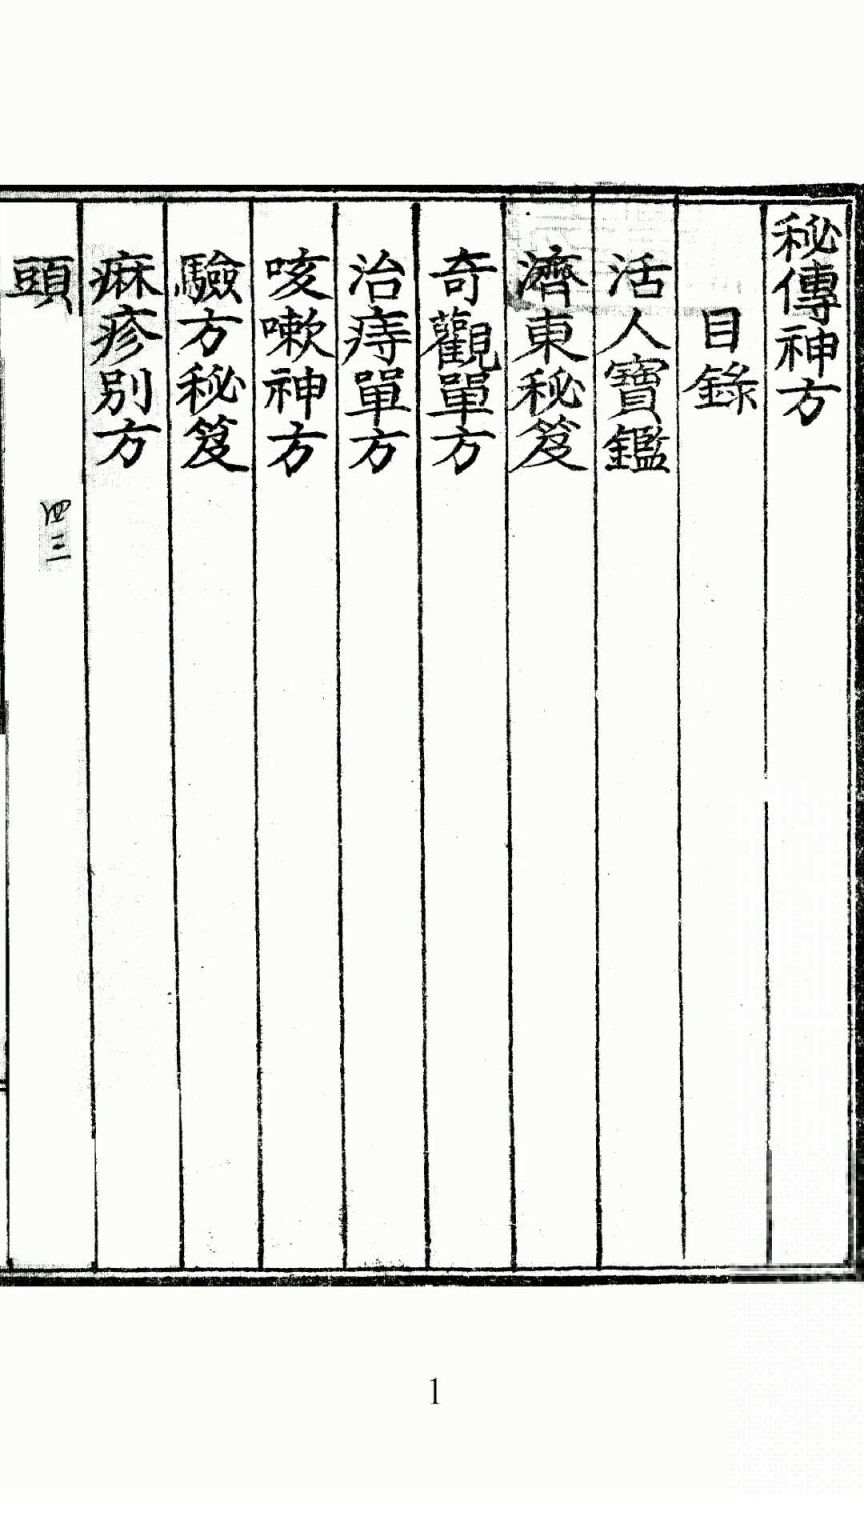 秘傳神方
目錄
活人寶鑑
濟東秘笈
奇觀單方
治痔單方
咳嗽神方
驗方秘笈
痳疹別方
頭
四三
1